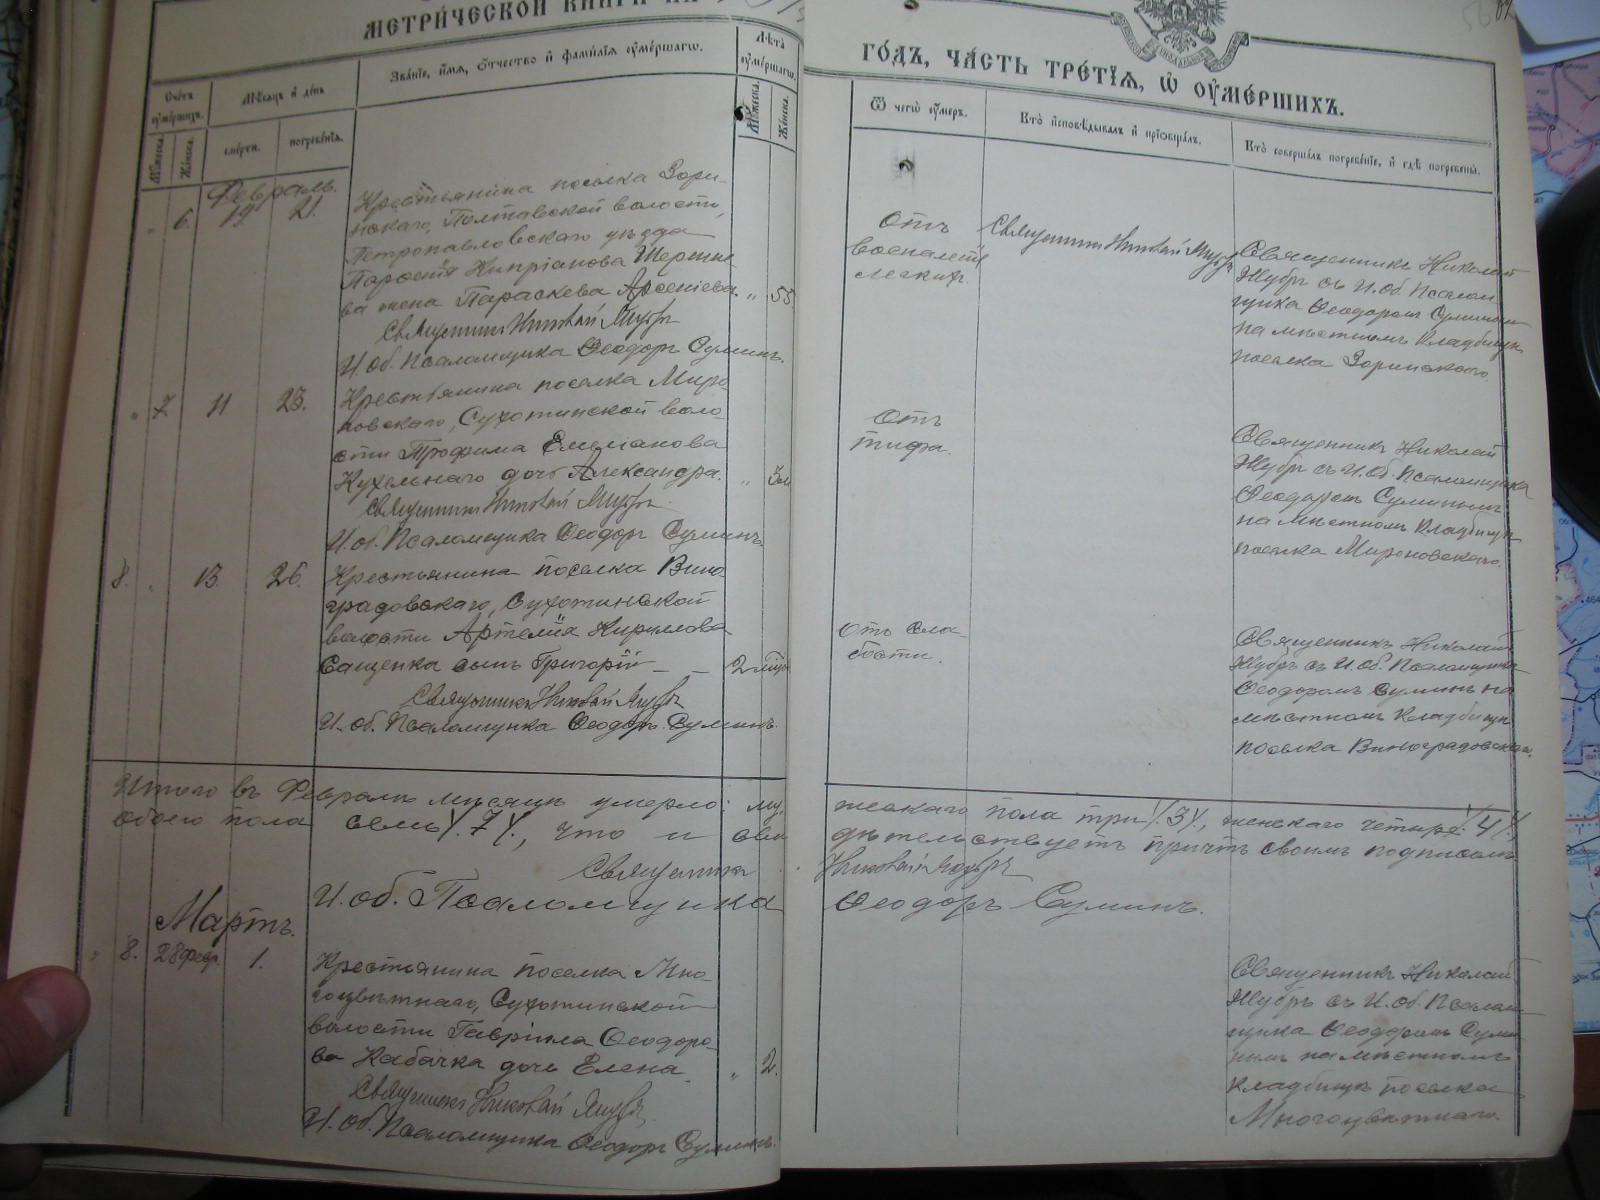 МЕТРИ́ЧЕСКОЙ КНИГИ НА
ГО́ДЪ, ЧА́СТЬ ТРЕ́ТІѦ, Ѡ҆ ОУ҆МЕ́РШИХЪ.
Сче́тъ оу҆ме́ршихъ.
Мѣ́сѧцъ и҆ де́нь
Зва́нїе, и҆́мѧ, ѻ҆́тчество и҆ фами́лїѧ оу҆ме́ршагѡ.
Лѣ́та оу҆ме́ршагѡ.
Ѿ чегѡ̀ оу҆́меръ.
Кто̀ и҆сповѣ́дывалъ и҆ прїѡбща́лъ.
Кто̀ соверша́лъ погребе́нїе, и҆ гдѣ̀ погребены̀.
Мꙋ́жеска.
Же́нска.
сме́рти.
погребе́нїѧ.
Мꙋ́жеска.
Же́нска.
Февраль.
" 6. 19. 21.
Крестьянина поселка Зори-
нскаго, Полтавской волости,
Петропавловскаго уѣзда
Кипріанова
ва жена Параскева Арсеніева. " 55.
Священникъ Николай
И. об. Псаломщика Ѳеодоръ Суминъ.
Отъ
воспаленія
легкихъ.
Священникъ Николай
Священникъ Николай
съ И. Об. Псалом
щика Ѳеодоромъ Суминымъ
на мѣстномъ кладбищѣ
поселка Зоринскаго.
" 7. 11 23.
Крестьянина поселка Миро-
новскаго, Сухотинской воло-
сти Трофима Емеліанова
Кухельнаго дочь Александра. "
Священникъ Николай
И. об. Псаломщика Ѳеодоръ Суминъ.
Отъ
тифа.
Священникъ Николай
съ И. Об. Псаломщика
Ѳеодоромъ Суминымъ
на мѣстномъ кладбищѣ
поселка Мироновскаго.
8. " 13. 26.
Крестьянина поселка Вино-
градовскаго, Сухотинской
волости Артемія Кирилова
Сащенка сынъ Григорій — — 2
Священникъ Николай
И. об. Псаломщика Ѳеодоръ Суминъ.
Отъ сла-
бости.
Священникъ Николай
съ И. Об. Псаломщика
Ѳеодоромъ Суминъ на
мѣстномъ кладбищѣ
поселка Виноградовскаго.
Итого въ Февралѣ мѣсяцѣ умерло: му, жскаго пола три /.3/., женскаго четыре /.4/.,
обоего пола семь /.7/., что и сви дѣтельствуетъ причтъ своимъ подписомъ
Священникъ Николай
И. об. Псаломщика Ѳеодоръ Суминъ.
Мартъ.
" 8. 28 февр. 1.
Крестьянина поселка Мно-
гоцвѣтнаго, Сухотинской
волости Гавріила Ѳеодоро-
ва Кабачка дочь Елена. " 2.
Священникъ Николай
И. об. Псаломщика Ѳеодоръ Суминъ.
Священникъ Николай
съ И. об. Псалом
щика Ѳеодоромъ Суми-
нымъ на мѣстномъ
кладбищѣ поселка
Многоцвѣтнаго.